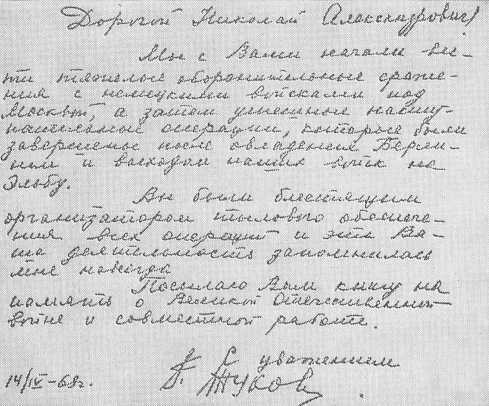 Дорогой Николай Александрович!
Мы с Вами начали вес-
ти тяжелые оборонительные сраже-
ния с немецкими войсками под
Москвой, а затем успешные насту-
пательные операции, которые были
завершены после овладением Берли-
ном и выходом наших войск на
Эльбу.
Вы были блестящим
организатором тылового обеспече-
ния всех операций и эта Ва-
ша деятельность запомнилась
мне навсегда
Посылаю Вам книгу на
память о Великой Отечественной
войне и совместной работе.
С уважением
14/IV-68г.
Г. Жуков